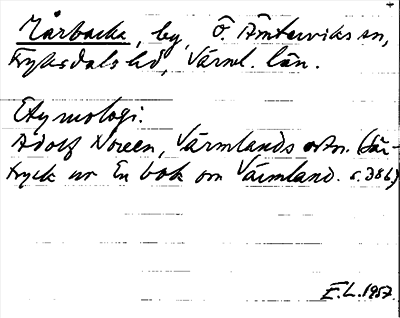 Mårbacka, by, Ö. Ämterviks sn,
Fryksdals hd, Värml. län.
Etymologi:
Adolf Noreen, Värmlands ortn. (Sär-
tryck ur En bok om Värmland. s. 386)
E.L. 1957.